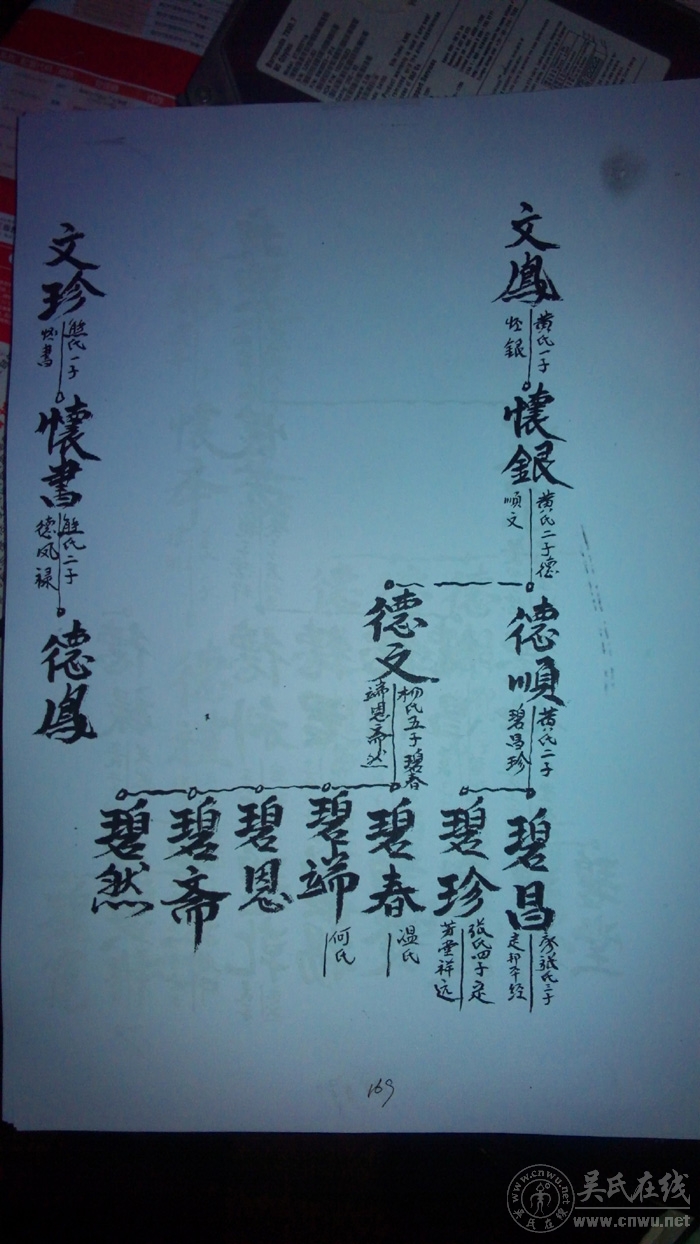 文鳳
黄氏一子
怀銀
懷銀
黄氏二子德
順文
德順
黄氏二子
碧昌珍
德文
杨氏五子碧春
端恩斋然
碧昌
定邦本经
碧珍
张氏四子定
芳堂祥远
碧春
温氏
碧端
何氏
碧恩
碧斋
碧然
文珍
熊氏一子
怀書
懷書
熊氏二子
德凤禄
德鳳
169
吴氏在线
www.cnwu.net